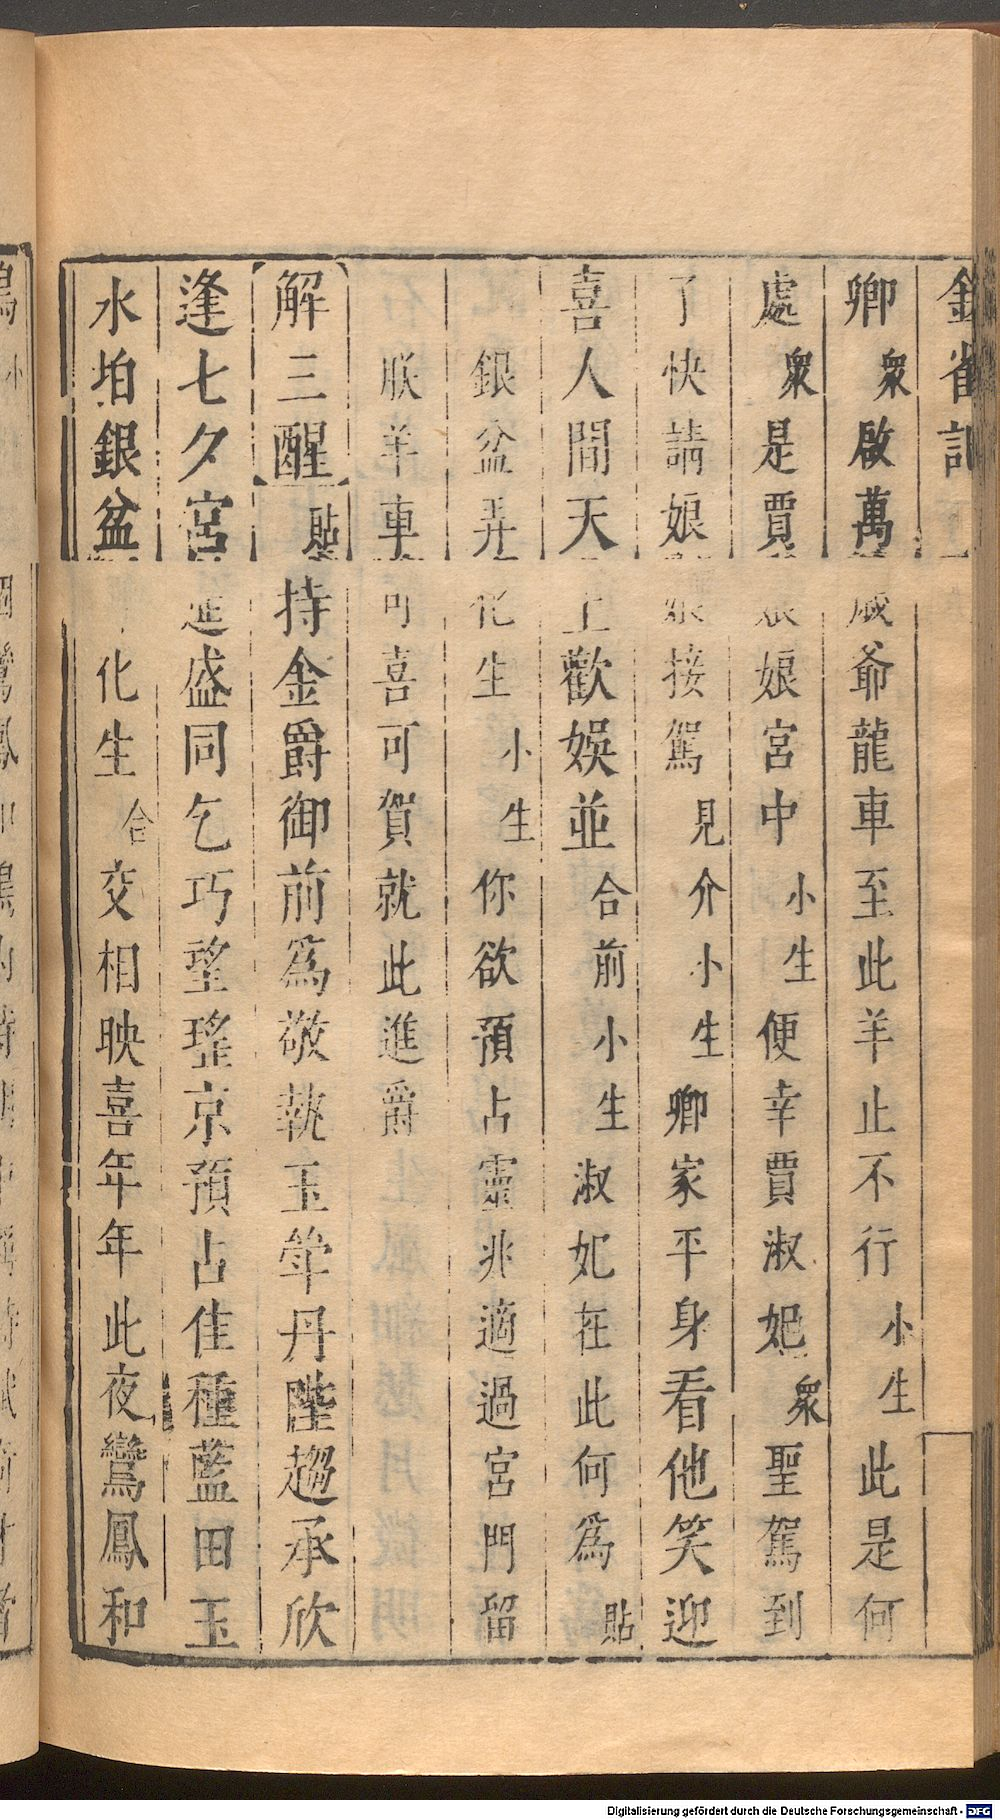 金雀記
卿衆啟萬歲爺龍車至此羊止不行小生此是何
處衆是賈娘娘宮中小生便幸賈淑妃衆聖駕到
了快請娘娘接駕見介小生卿家平身看他笑迎
喜人間天上歡娛並合前小生淑妃在此何爲貼
銀盆弄化生小生你欲預占靈兆適過宮門留
朕羊車可喜可賀就此進爵
解三醒貼持金爵御前爲敬執玉斝丹陛趨承欣
逢七夕宮筵盛同乞巧望瑤京預占佳種藍田玉
水拍銀盆化生合交相映喜年年此夜鸞鳳和
Digitalisierung gefördert durch die Deutsche Forschungsgemeinschaft - DFG